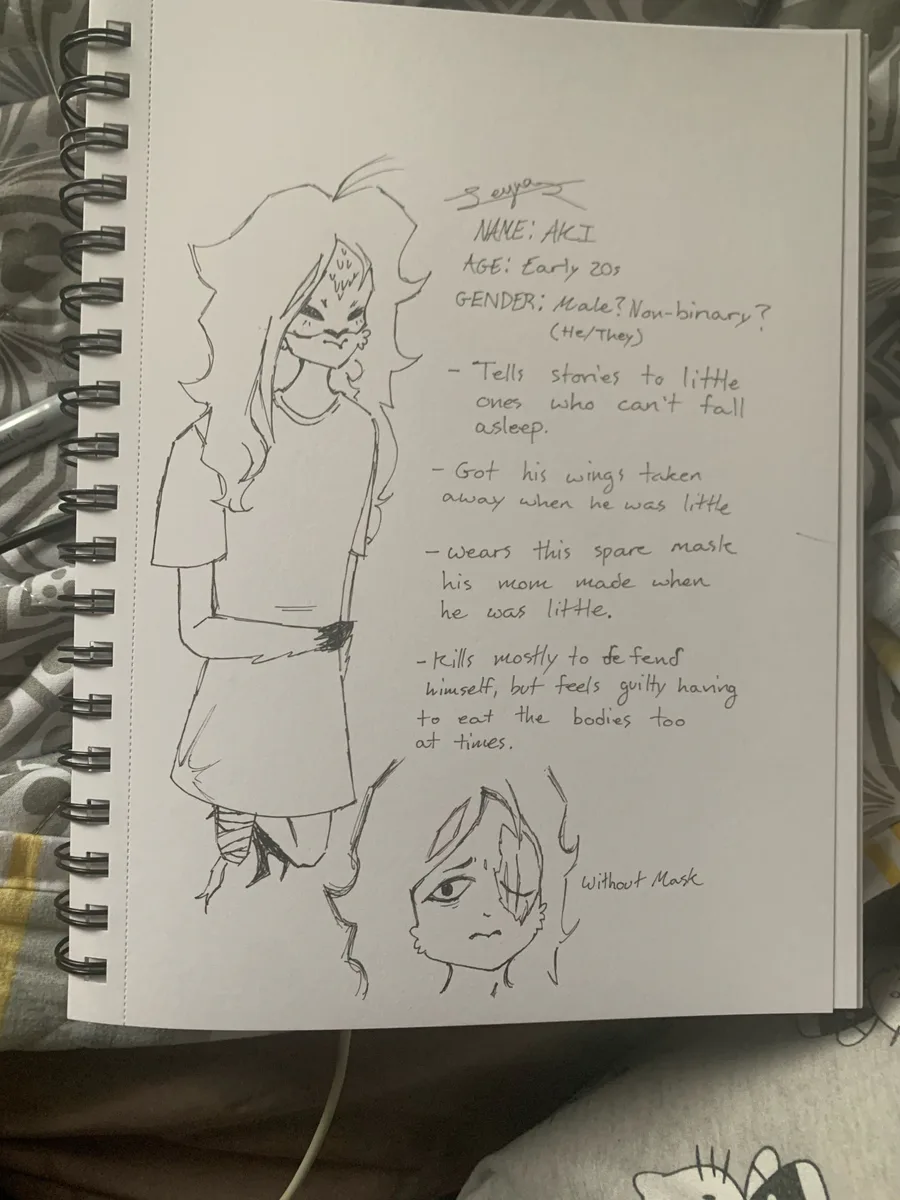 NAME: AKI
AGE: Early 20s
GENDER: Male? Non-binary?
(He/They)
- Tells stories to little
ones who can't fall
asleep.
- Got his wings taken
away when he was little
- wears this spare mask
his mom made when
he was little.
- Kills mostly to defend
himself, but feels guilty having
to eat the bodies too
at times.
Without Mask